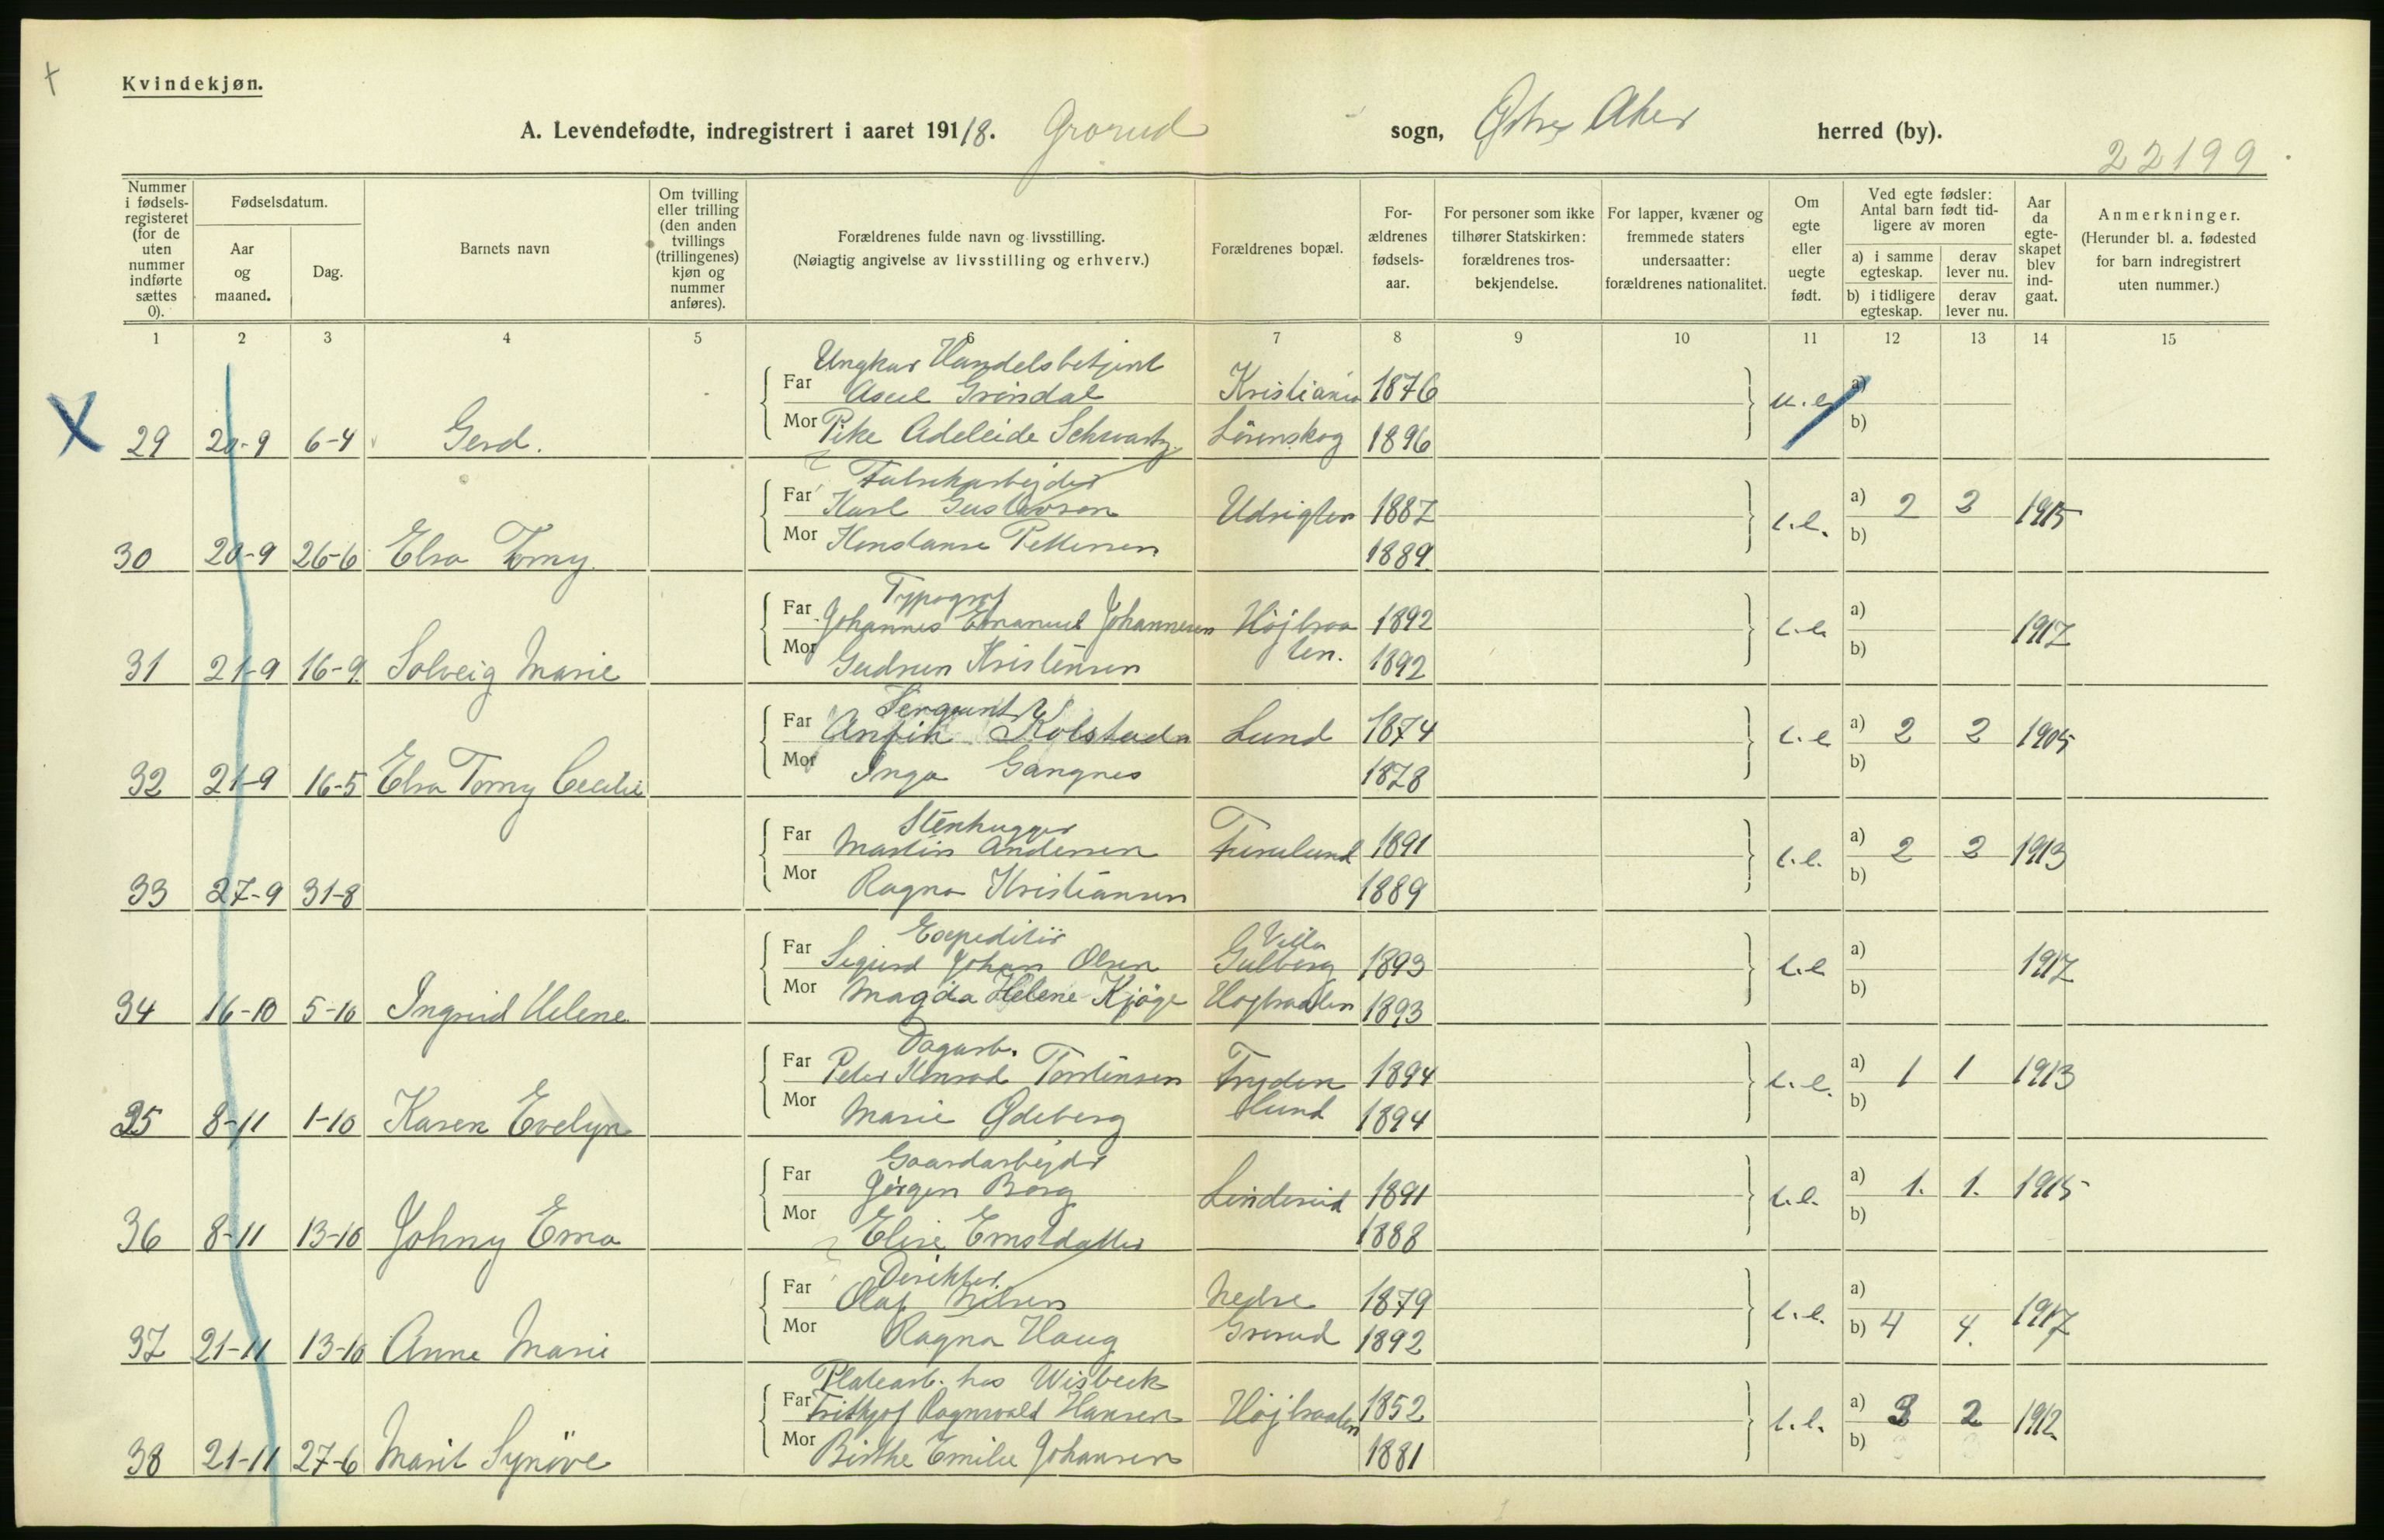 Kvindekjøn.
A. Levendefødte, indregistrert i aaret 19118. Grorud sogn, Østre Aker herred (by).
22199
Nummer i fødsels-registeret (for de uten nummer indførte sættes 0).
Fødselsdatum.
Aar og maaned.
Dag.
Barnets navn
Om tvilling eller trilling (den anden tvillings (trillingenes) kjøn og nummer anføres).
Forældrenes fulde navn og livsstilling.
(Nøiagtig angivelse av livsstilling og erhverv.)
Forældrenes bopæl.
For-ældrenes fødsels-aar.
For personer som ikke tilhører Statskirken: forældrenes tros-bekjendelse.
For lapper, kvæner og fremmede staters undersaatter: forældrenes nationalitet.
Om egte eller uegte født.
Ved egte fødsler: Antal barn født tid-ligere av moren
a) i samme egteskap.
derav lever nu.
b) i tidligere egteskap.
derav lever nu.
Aar da egte-skapet blev ind-gaat.
Anmerkninger.
(Herunder bl. a. fødested for barn indregistrert uten nummer.)
1 2 3 4 5 6 7 8 9 10 11 12 13 14 15
Ungkar Handelsbetjent
Far Grindal Kristiania 1876 u.e. a)
X 29 20-9 6-4 Gerd. Mor Pike Adeleide Schwartz Lørenskog 1896 b)
Fabrikarbejder
Far Karl Gustavson Udsigten 1887 e.e. a) 2 2 1915
30 20-9 26-6 Elsa Tomy Mor Konstanse Pettersen 1889 b)
Typograf
Far Johannes Emanuel Johannesen Højbraa 1892 e.e. a) 1917
31 21-9 16-9 Solveig Marie Mor Gudrun Kristensen ten. 1892 b)
Sergeant
Far Anfin Kolstad Lund 1874 e.e a) 2 2 1905
32 21-9 16-5 Elsa Tomy Cecilie Mor Inga Gangnes 1878 b)
Stenhugger
Far Martin Andersen Furulund 1891 e.e. a) 2 2 1913
33 27-9 31-8 Mor Ragna Kristiansen 1889 b)
Expeditør Villa
Far Sigurd Johan Olsen Gulberg 1893 e.e a) 1917
34 16-10 5-10 Ingrid Helene Mor Magda Helene Kjøge Højbraaten 1893 b)
Dagarb.
Far Peter Konrad Torstensen Fryden 1894 e.e. a) 1 1 1913
35 8-11 1-10 Karen Evelyn Mor Marie Ødeberg lund 1894 b)
Gaardarbejder
Far Jørgen Borg Linderud 1891 e.e. a) 1. 1. 1915
36 8-11 13-10 Johny Erna Mor Elise Ernstdatter 1888 b)
Direktør.
Far Olaf Nilsen Nedre 1879 e.e. a) 1917
37 21-11 13-10 Anne Marie Mor Ragna Haug Grorud 1892 b) 4 4.
Platearb. hos Wisbeck
Far Frithjof Ragnvald Hansen Højbraaten 1852 e.e. a) 3 2 1912.
38 21-11 27-6 Marit Synøve Mor Birthe Emilie Johansen 1881 b)